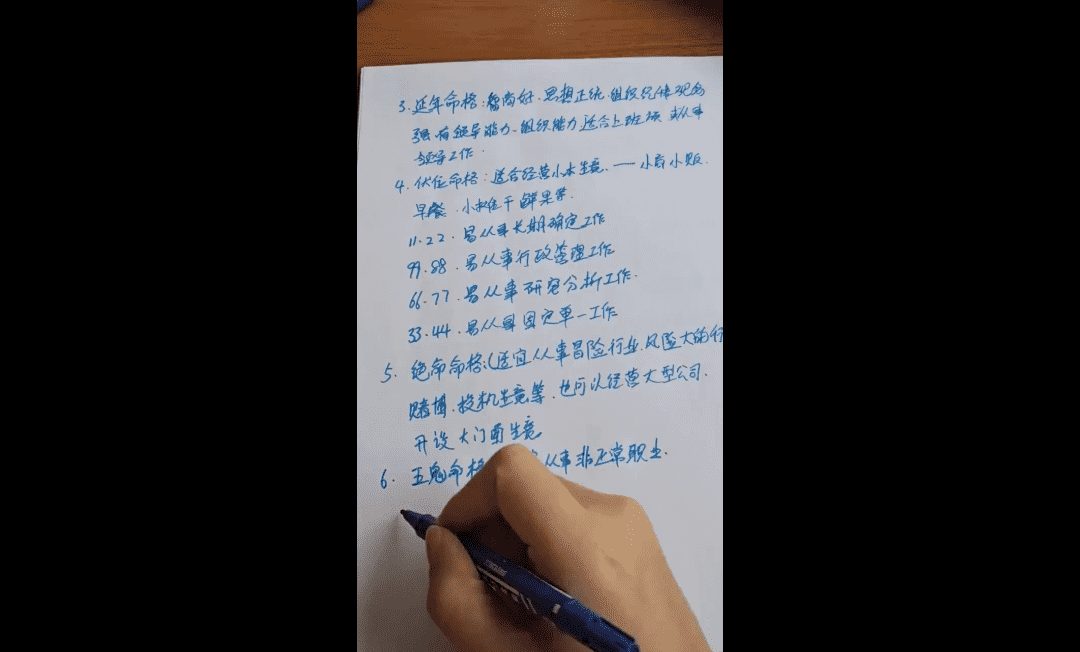 3.延年命格:智商好.思想正统.组织纪律观念
强.有领导能力、组织能力适合上班族 或从事
领导工作.
4.伏位命格:适合经营小本生意.——小商小贩.
早餐、小摊位干鲜果等.
11.22.易从事长期稳定工作
99.88.易从事行政管理工作
66.77.易从事研究分析工作.
33.44.易从事固定单一工作
5.绝命命格:(适宜从事冒险行业.风险大的行
赌博、投机生意等.也可以经营大型公司.
开设大门面生意
6.五鬼命格 从事非正常职业.